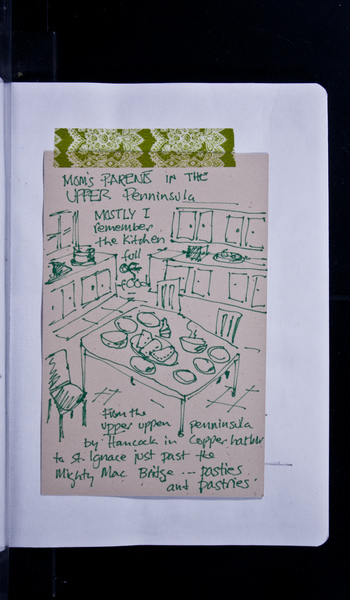 MOM'S PARENTS in THE
UPPER Penninsula
MOSTLY I
remember
the kitchen
full
OF
FOOD
From the
upper upper penninsula
by Hancock in Copper harbor
to St. Ignace just past the
Mighty Mac Bridge --- pasties
and pastries.